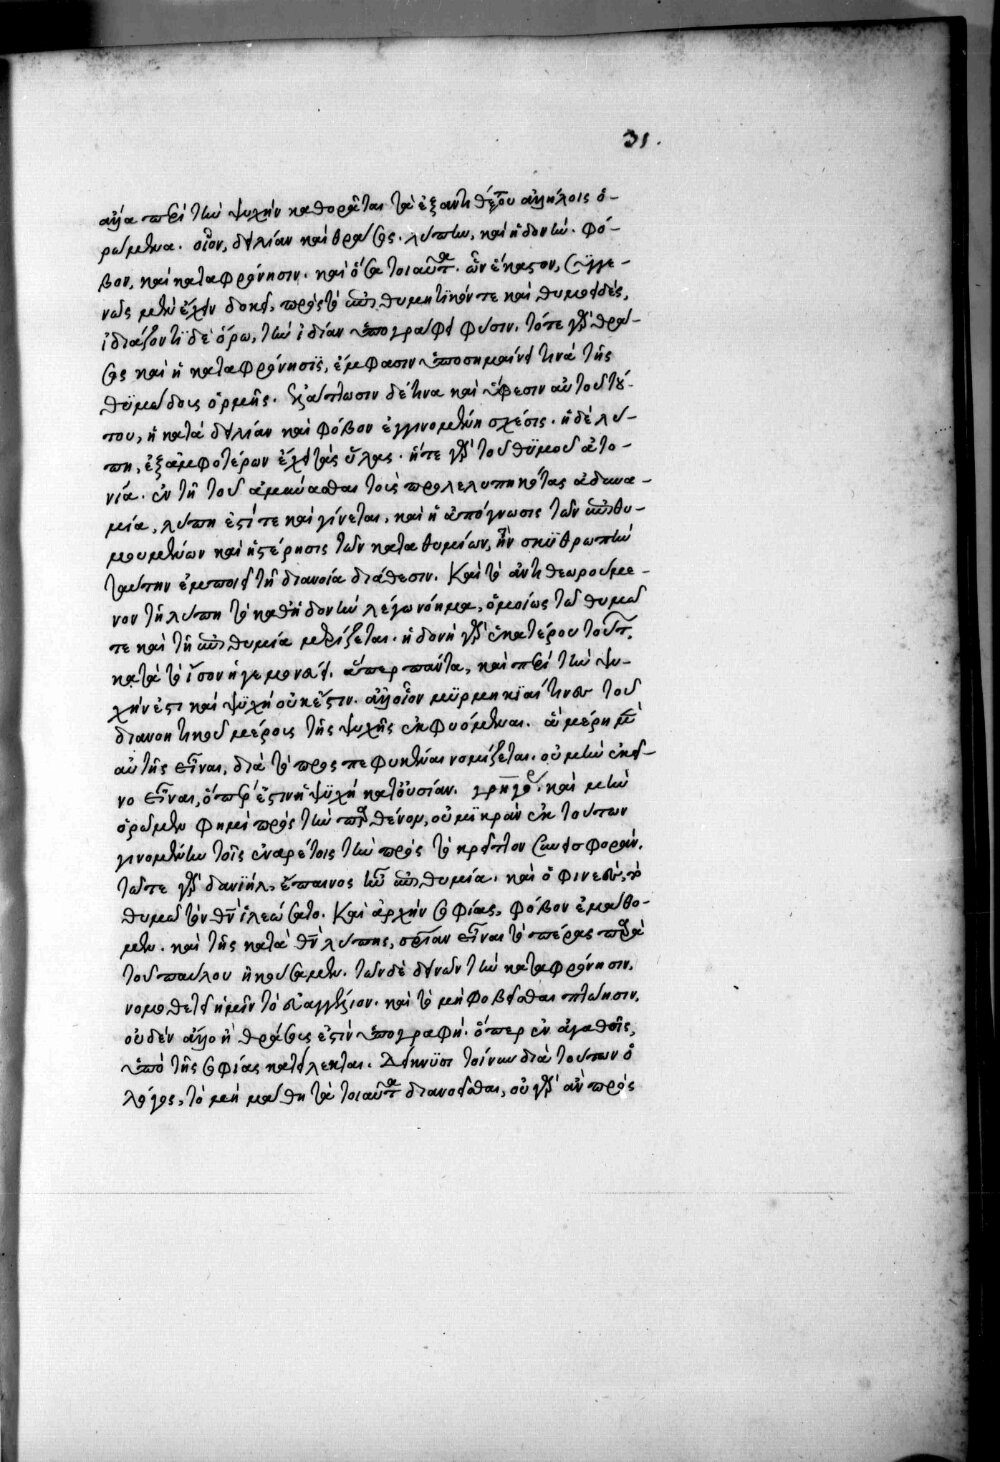 31.
ἀλλὰ περὶ τὴν ψυχὴν καθορᾶται τὰ ἐξ ἀντιθέτου ἀλλήλοις ὁ-
ρώμενα. οἷον, δειλίαν καὶ θράσος. λύπην, καὶ ἡδονήν. φό-
βον, καὶ καταφρόνησιν. καὶ ὅσα τοιαῦτα. ὧν ἕκαστον, συγγε-
νῶς μὲν ἔχειν δοκεῖ, πρὸς τὸ ἐπιθυμητικόν τε καὶ θυμοειδές,
ἰδιάζοντι δὲ ὅρω, τὴν ἰδίαν ὑπογράφει φύσιν. τότε γὰρ θρά-
σος καὶ ἡ καταφρόνησις, ἔμφασιν ὑποσημαίνει τινὰ τῆς
θυμώδους ὁρμῆς. ἐλάττωσιν δέ τινα καὶ ὕφεσιν αὐτοῦ τού-
του, ἡ κατὰ δειλίαν καὶ φόβον ἐγγινομένη σχέσις. ἡ δὲ λύ-
πη, ἐξ ἀμφοτέρων ἔχει τὰς ὕλας. ἥτε γὰρ τοῦ θυμοῦ ἀτο-
νία. ἐν τῆ τοῦ ἀμύνασθαι τοὺς προλελυπηκότας ἀδυνα-
μία, λύπη ἐστί τε καὶ γίνεται, καὶ ἡ ἀπόγνωσις τῶν ἐπιθυ-
μουμένων καὶ ἡ στέρησις τῶν καταθυμίων, ἣν σκυθρωπὴν
ταύτην ἐμποιεῖ τῆ διανοία διάθεσιν. Καὶ τὸ ἀντιθεωρούμε-
νον τῆ λύπη τὸ καθ' ἡδονὴν λέγω νόημα, ὁμοίως τῶ θυμῶ
τε καὶ τῆ ἐπιθυμία μερίζεται. ἡδονὴ γὰρ ἑκατέρου τούτων
κατὰ τὸ ἴσον ἡγεμονεύει. ἅπερ πάντα, καὶ περὶ τὴν ψυ-
χήν ἐστι καὶ ψυχὴ οὐκ ἔστιν. ἀλλ' οἷον μυρμηκίαι τινες τοῦ
διανοητικοῦ μέρους τῆς ψυχῆς ἐκφυόμεναι. ἃ μέρη μὲν
αὐτῆς εἶναι, διὰ τὸ προσπεφυκέναι νομίζεται. οὐ μὴν ἐκεῖ-
νο εἶναι, ὅπερ ἐστὶν ἡ ψυχὴ κατ' οὐσίαν. γρηγορ. καὶ μὴν
ὁρῶμεν φημὶ πρὸς τὴν παρθένον, οὐ μικρὰν ἐκ τούτων
γινομένην τοῖς ἐναρέτοις τὴν πρὸς τὸ κρεῖττον συνεισφοράν.
τῶτε γὰρ δανιὴλ, ἔπαινος ἦν ἐπιθυμία. καὶ ὁ φινεὲς, τῶ
θυμῶ τὸν θν ἱλεώσατο. Καὶ ἀρχὴν σοφίας, φόβον ἐμάθο-
μεν. καὶ τῆς κατὰ θν λύπης, σριαν εἶναι τὸ πέρας παρὰ
τοῦ παύλου ἠκούσαμεν. τῶνδε δεινῶν τὴν καταφρόνησιν,
νομοθετεῖ ἡμῖν τὸ εὐαγγέλιον. καὶ τὸ μὴ φοβεῖσθαι πτόησιν,
οὐδὲν ἄλλο ἢ θράσους ἐστὶν ὑπογραφή. ὅπερ ἐν ἀγαθοῖς,
ὑπὸ τῆς σοφίας κατείλεκται. Δείκνυσι τοίνυν διὰ τούτων ὁ
λόγος, τὸ μὴ πάθη τὰ τοιαῦτα διανοεῖσθαι, οὐ γὰρ ἂν πρὸς